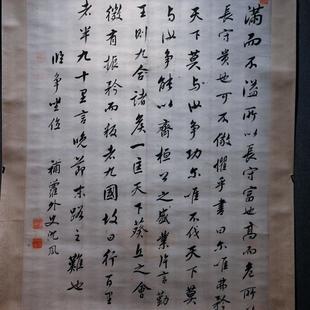 滿而不溢所以長守富也高而不危所以
長守貴也可不儆懼乎書曰尔唯弗矜
天下莫與汝争功尔唯不伐天下莫
与汝争能以齊桓公之盛業片言勤
王則九合諸侯一匡天下葵丘之會
微有振矜而叛者九國故曰行百里
者半九十里言晚節末路之難也
臨争坐位 補蘿外史沈鳳